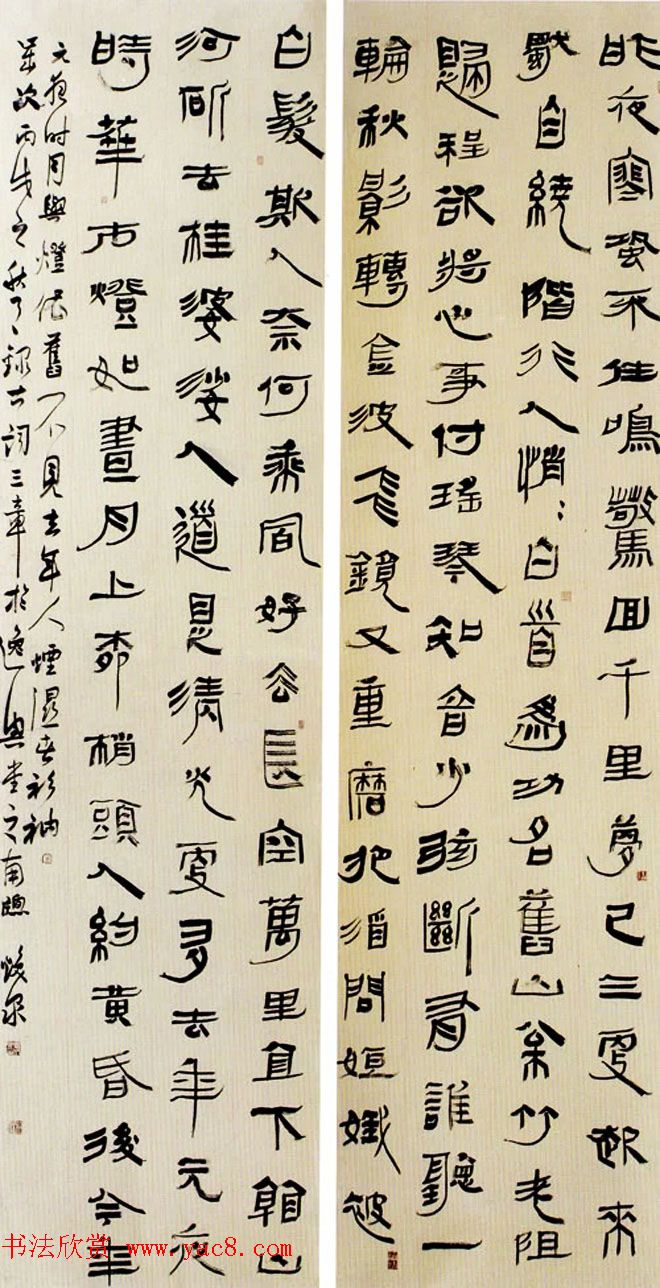 昨夜寒蛩不住鳴驚回千里夢已三更起來
獨自繞階行人悄悄白首為功名舊山松竹老阻
歸程欲將心事付瑤琴知音少弦斷有誰聽一
輪秋影轉金波飛鏡又重磨把酒問姮娥被
白髮欺人奈何乘風好去長空萬里直下看山
河斫去桂婆娑人道是清光更多去年元夜
時華市燈如晝月上柳梢頭人約黃昏後今年
元夜時月與燈依舊不見去年人淚濕春衫袖
歲次丙戌之秋 錄古詞三章於逸興堂之南窗
书法欣赏 www.yac8.com